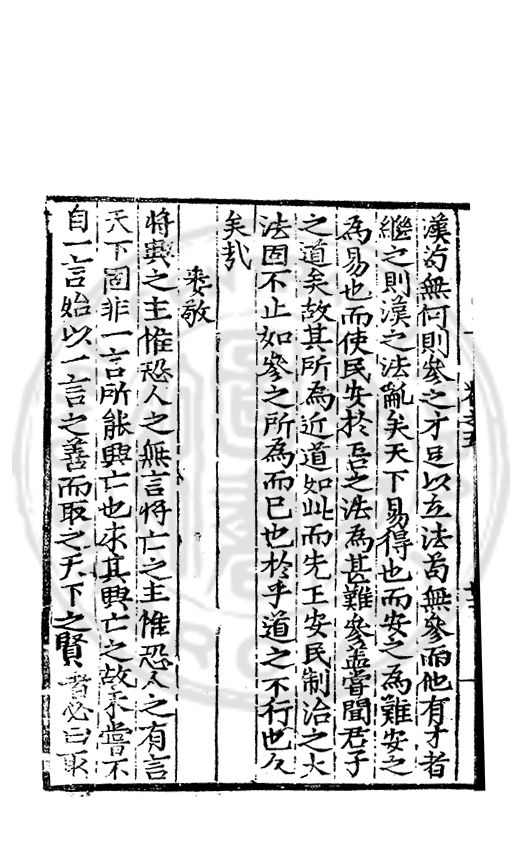 漢苟無何則參之才足以立法苟無參而他有才者
繼之則漢之法亂矣天下易得也而安之為難安之
為易也而使民安於吾之法為甚難參盖嘗聞君子
之道矣故其所為近道如此而先王安民制治之大
法固不止如參之所為而已也於乎道之不行也久
矣哉
婁敬
將興之主惟恐人之無言將亡之主惟恐人之有言
天下固非一言所能興亡也求其興亡之故未嘗不
自一言始以一言之善而取之天下之賢者必曰取
卷之五